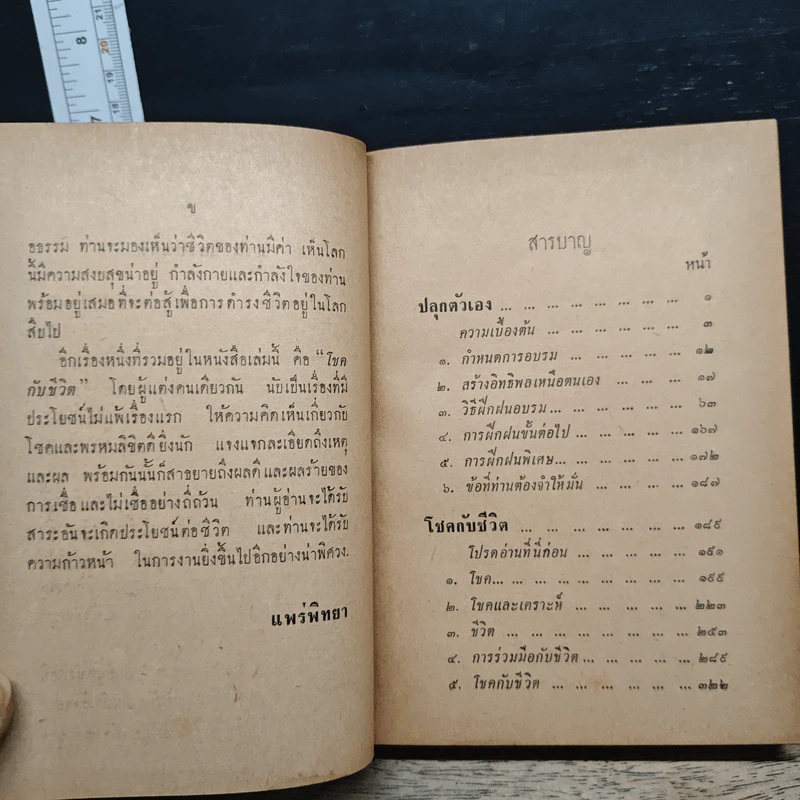 8
21
20
19
7
18
ข
ธธรรม ท่านจะมองเห็นว่าชีวิตของท่านมีค่า เห็นโลก
นี้มีความสงบสุขน่าอยู่ กำลังกายและกำลังใจของท่าน
พร้อมอยู่เสมอที่จะต่อสู้เพื่อการดำรงชีวิตอยู่ในโลก
สืบไป
อีกเรื่องหนึ่งที่รวมอยู่ในหนังสือเล่มนี้ คือ "โชค
กับชีวิต" โดยผู้แต่งคนเดียวกัน นับเป็นเรื่องที่มี
ประโยชน์ไม่แพ้เรื่องแรก ให้ความคิดเห็นเกี่ยวกับ
โชคและพรหมลิขิตดียิ่งนัก แจงแจกละเอียดถึงเหตุ
และผล พร้อมกันนั้นก็สาธยายถึงผลดีและผลร้ายของ
การเชื่อและไม่เชื่ออย่างถี่ถ้วน ท่านผู้อ่านจะได้รับ
สาระอันจะเกิดประโยชน์ต่อชีวิต และท่านจะได้รับ
ความก้าวหน้า ในการงานยิ่งขึ้นไปอีกอย่างน่าพิศวง.
แพร่พิทยา
สารบาญ
หน้า
ปลุกตัวเอง ... ... ... ... ... ... ... ๑
ความเบื้องต้น ... ... ... ... ... ... ๓
๑. กำหนดการอบรม ... ... ... ... ... ๑๒
๒. สร้างอิทธิพลเหนือตนเอง ... ... ... ... ๑๗
๓. วิธีฝึกฝนอบรม ... ... ... ... ... ๖๓
๔. การฝึกฝนขั้นต่อไป ... ... ... ... ๑๖๗
๕. การฝึกฝนพิเศษ... ... ... ... ... ๑๗๒
๖. ข้อที่ท่านต้องจำให้มั่น ... ... ... ... ๑๘๗
โชคกับชีวิต ... ... ... ... ... ... ๑๘๙
โปรดอ่านที่นี่ก่อน ... ... ... ... ... ๑๙๑
๑. โชค... ... ... ... ... ... ... ๑๙๙
๒. โชคและเคราะห์ ... ... ... ... ... ๒๒๓
๓. ชีวิต ... ... ... ... ... ... ... ๒๕๓
๔. การร่วมมือกับชีวิต ... ... ... ... ... ๒๘๙
๕. โชคกับชีวิต ... ... ... ... ... ... ๓๒๒